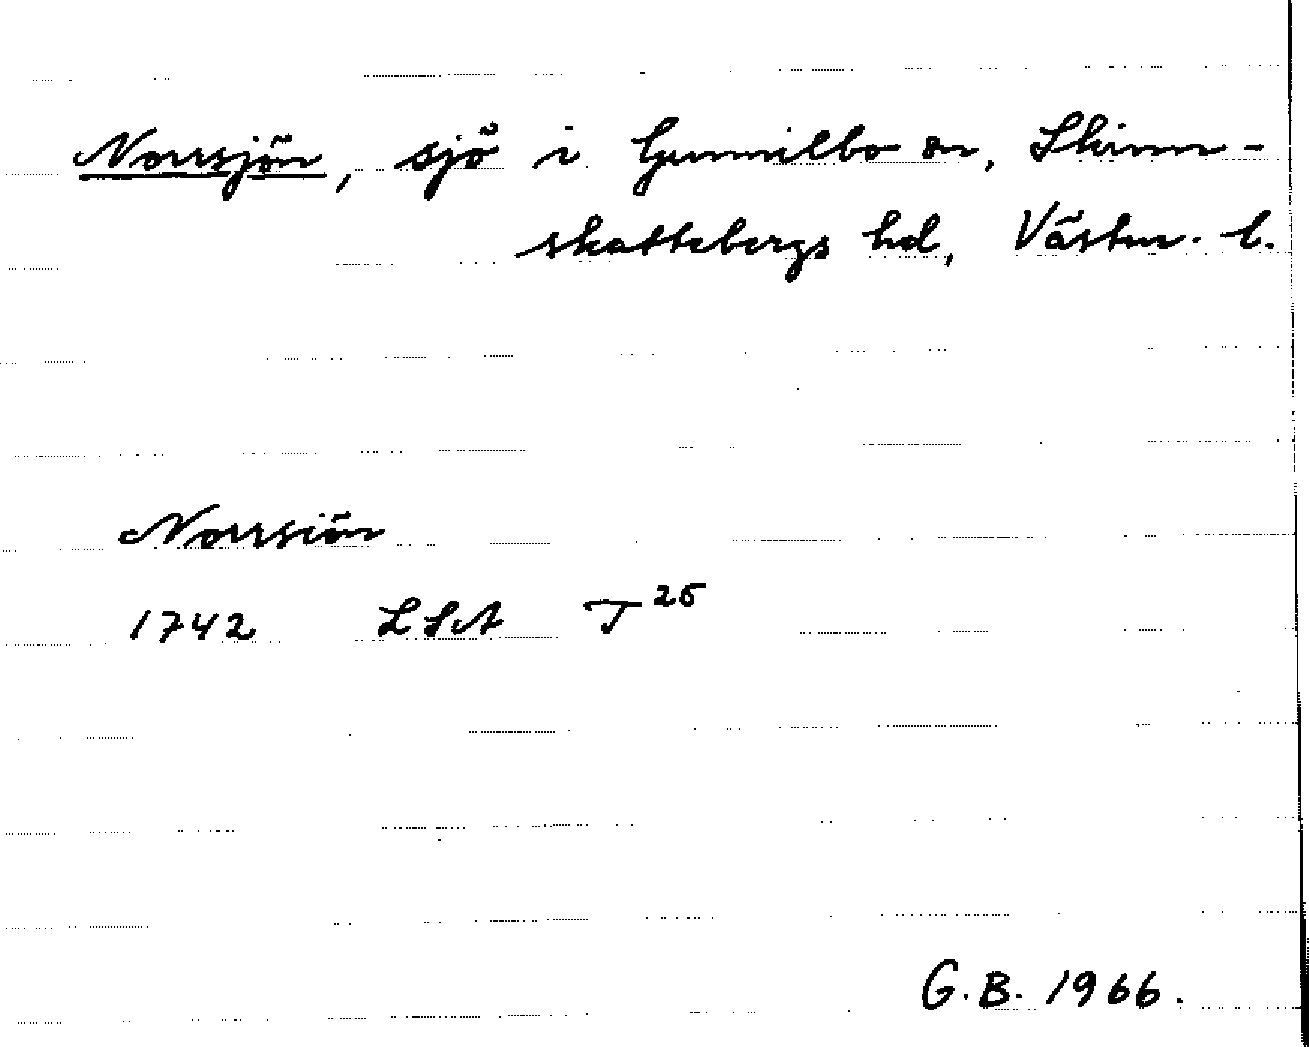 Norrsjön, sjö i Gunnilbo sn, Skinn-
skattebergs hd, Västm. l.
Norrsiön
1742 LSA T 25
G.B. 1966.